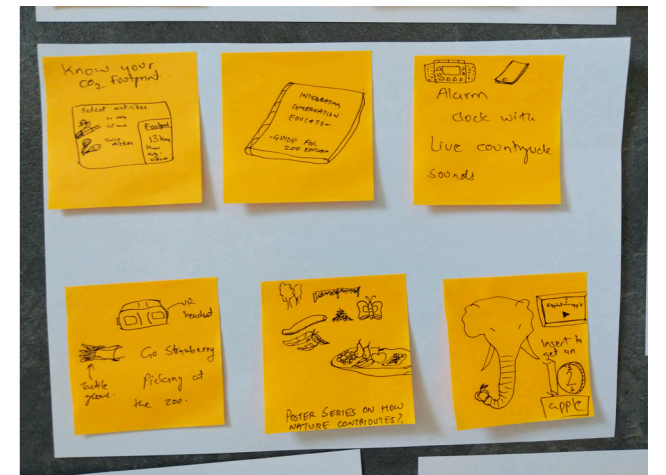 Know your
CO2 footprint
Select activities
Footprint
INTEGRATING
CONSERVATION
EDUCATION
-GUIDE FOR
ZOO
Alarm
clock with
Live countryside
sounds
VR
headset
Tactile
glove.
Go Strawberry
Picking at
the zoo.
POSTER SERIES ON HOW
NATURE CONTRIBUTES?
Insert to
get an
2
apple